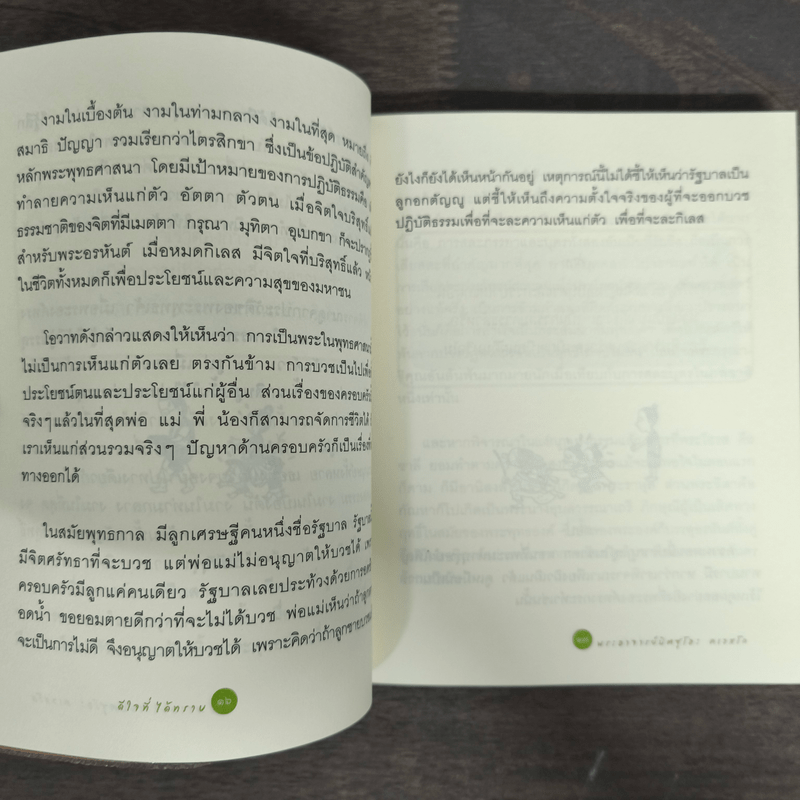 งามในเบื้องต้น งามในท่ามกลาง งามในที่สุด
สมาธิ ปัญญา รวมเรียกว่าไตรสิกขา ซึ่งเป็นข้อปฏิบัติสำคัญ
หลักพระพุทธศาสนา โดยมีเป้าหมายของการปฏิบัติธรรมคือ
ทำลายความเห็นแก่ตัว อัตตา ตัวตน เมื่อจิตใจบริสุทธิ์
ธรรมชาติของจิตที่มีเมตตา กรุณา มุทิตา อุเบกขา ก็จะปราก
สำหรับพระอรหันต์ เมื่อหมดกิเลส มีจิตใจที่บริสุทธิ์แล้ว
ในชีวิตทั้งหมดก็เพื่อประโยชน์และความสุขของมหาชน
โอวาทดังกล่าวแสดงให้เห็นว่า การเป็นพระในพุทธศาสนา
ไม่เป็นการเห็นแก่ตัวเลย ตรงกันข้าม การบวชเป็นไปเพื่อ
ประโยชน์ตนและประโยชน์แก่ผู้อื่น ส่วนเรื่องของครอบครัว
จริงๆแล้วในที่สุดพ่อ แม่ พี่ น้องก็สามารถจัดการชีวิตได้
เราเห็นแก่ส่วนรวมจริงๆ ปัญหาด้านครอบครัวก็เป็นเรื่อง
ทางออกได้
ในสมัยพุทธกาล มีลูกเศรษฐีคนหนึ่งชื่อรัฐบาล รัฐบาล
มีจิตศรัทธาที่จะบวช แต่พ่อแม่ไม่อนุญาตให้บวชได้
ครอบครัวมีลูกแค่คนเดียว รัฐบาลเลยประท้วงด้วยการ
อดน้ำ ขอยอมตายดีกว่าที่จะไม่ได้บวช พ่อแม่เห็นว่าถ้า
จะเป็นการไม่ดี จึงอนุญาตให้บวชได้ เพราะคิดว่าถ้าลูกชายบวช
ดีใจที่ได้ทราบ ๑๖
ยังไงก็ยังได้เห็นหน้ากันอยู่ เหตุการณ์นี้ไม่ได้ชี้ให้เห็นว่ารัฐบาลเป็น
ลูกอกตัญญู แต่ชี้ให้เห็นถึงความตั้งใจจริงของผู้ที่จะออกบวช
ปฏิบัติธรรมเพื่อที่จะละความเห็นแก่ตัว เพื่อที่จะละกิเลส